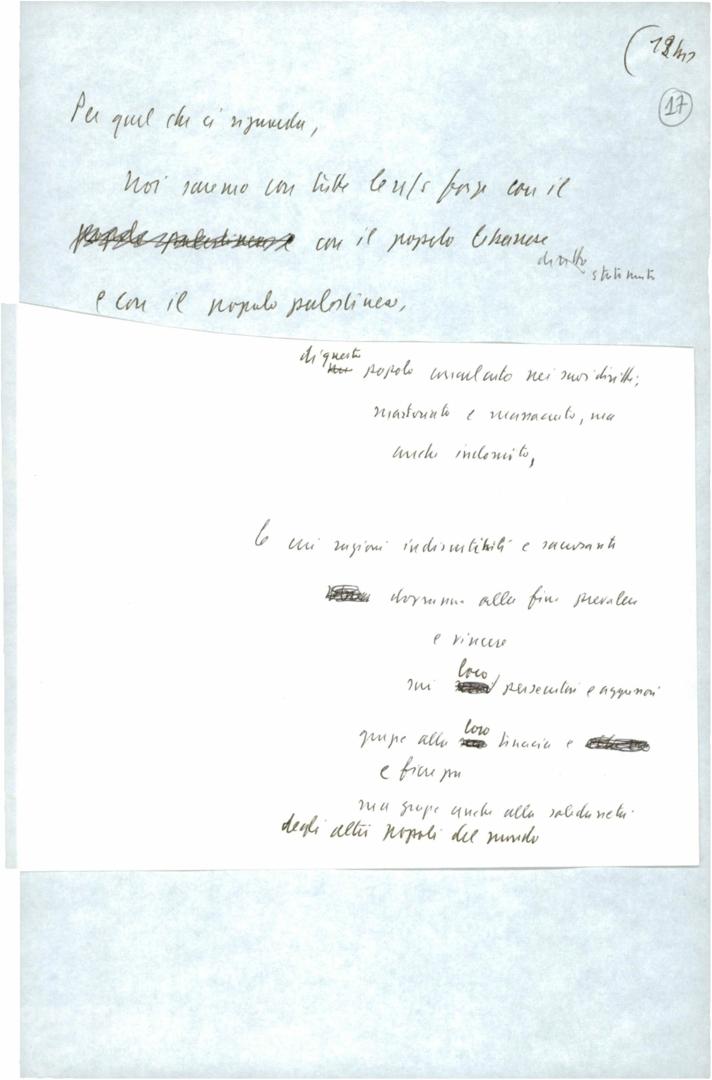 (12bis
17
Per quel che ci riguarda,
noi saremo con tutte le n/s forze con il
popolo palestinese con il popolo libanese
diritto
e con il popolo palestinese,
di questo
popolo conculcato nei suoi diritti;
martoriato e massacrato, ma
anche indomito,
le cui ragioni indiscutibili e sacrosante
dovranno alla fine prevalere
e vincere
sui loro persecutori e aggressori
grazie alla loro tenacia e
e fierezza
ma grazie anche alla solidarietà
degli altri popoli del mondo